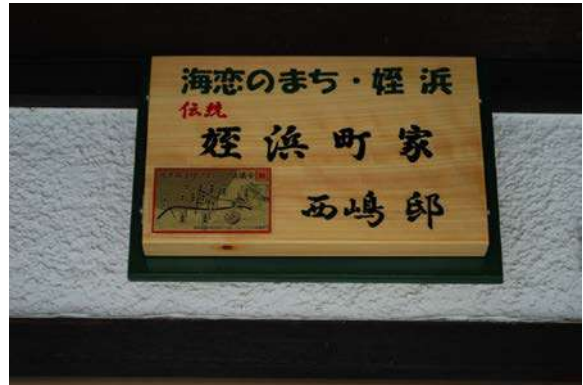 海恋のまち・姪浜
伝統
姪浜町家
西嶋邸